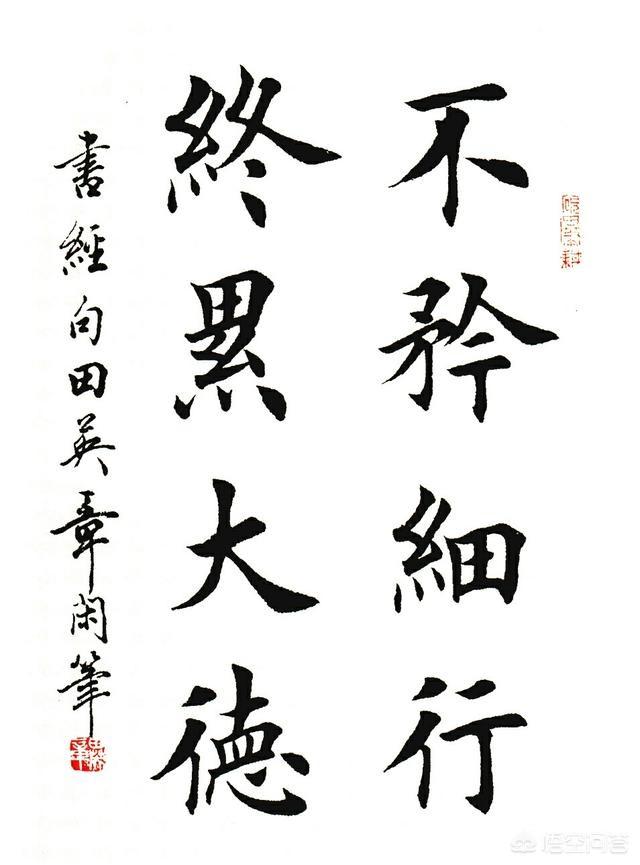 不矜細行
終累大德
書經句田英章閑筆
悟空问答